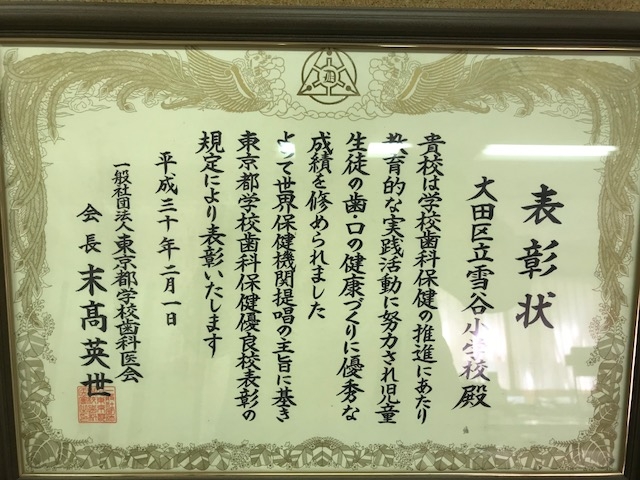 表彰状
大田区立雪谷小学校殿
貴校は学校歯科保健の推進にあたり
教育的な実践活動に努力され児童
生徒の歯・口の健康づくりに優秀な
成績を修められました
よって世界保健機関提唱の主旨に基き
東京都学校歯科保健優良校表彰の
規定により表彰いたします
平成三十年二月一日
一般社団法人東京都学校歯科医会
会長末髙英世